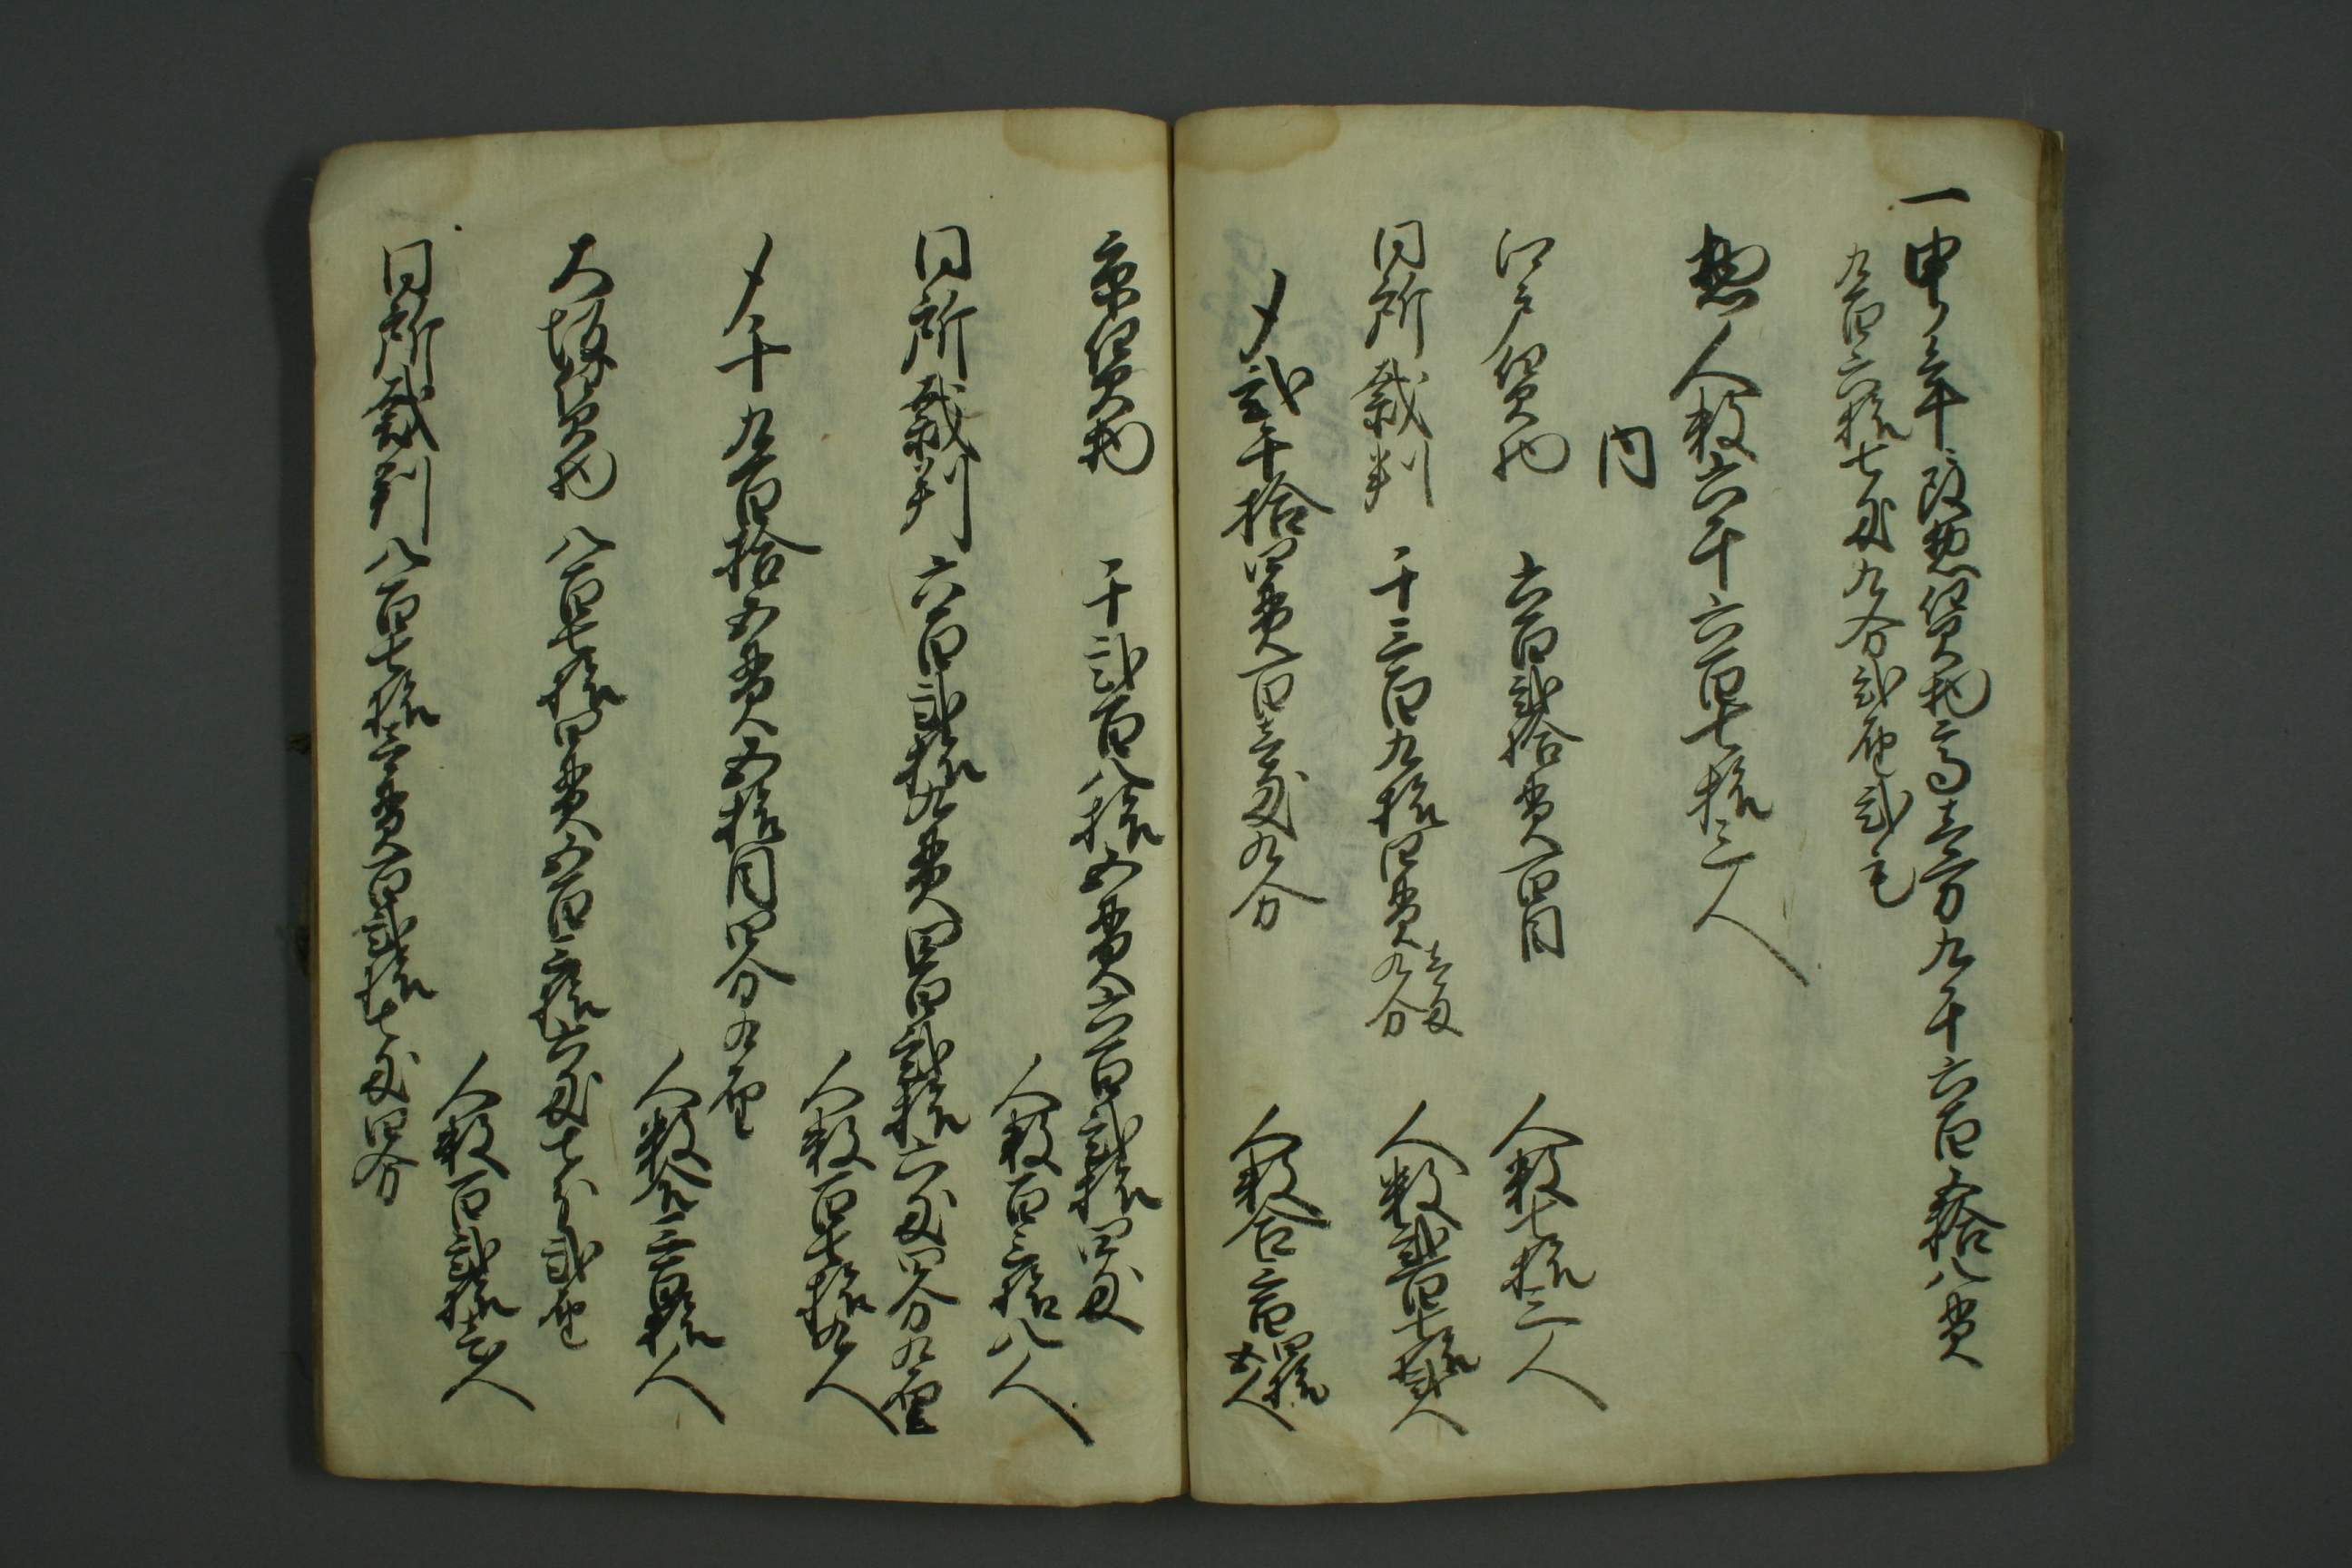 一申ノ年改惣銀貸物高壱万九千六百拾八貫
九百六拾七匁九分弐厘弐毛
惣人数六千六百七拾三人
内
江戸貸物　六百弐拾貫百目
人数七拾三人
同所裁判　千三百九拾四貫壱匁九分
人数弐百七拾弐人
〆弐千拾四貫百壱匁九分
人数合三百四拾五人
京貸物　千弐百八拾五貫六百弐拾四匁
人数百三拾八人
同所裁判　六百弐拾九貫四百弐拾六匁四分九厘
人数百七拾九人
〆千九百拾五貫五拾目四分九厘
人数合三百拾人
大坂貸物　八百七拾四貫五百三拾六匁七分弐厘
人数百弐拾壱人
同所裁判　八百七拾三貫百弐拾七匁四分